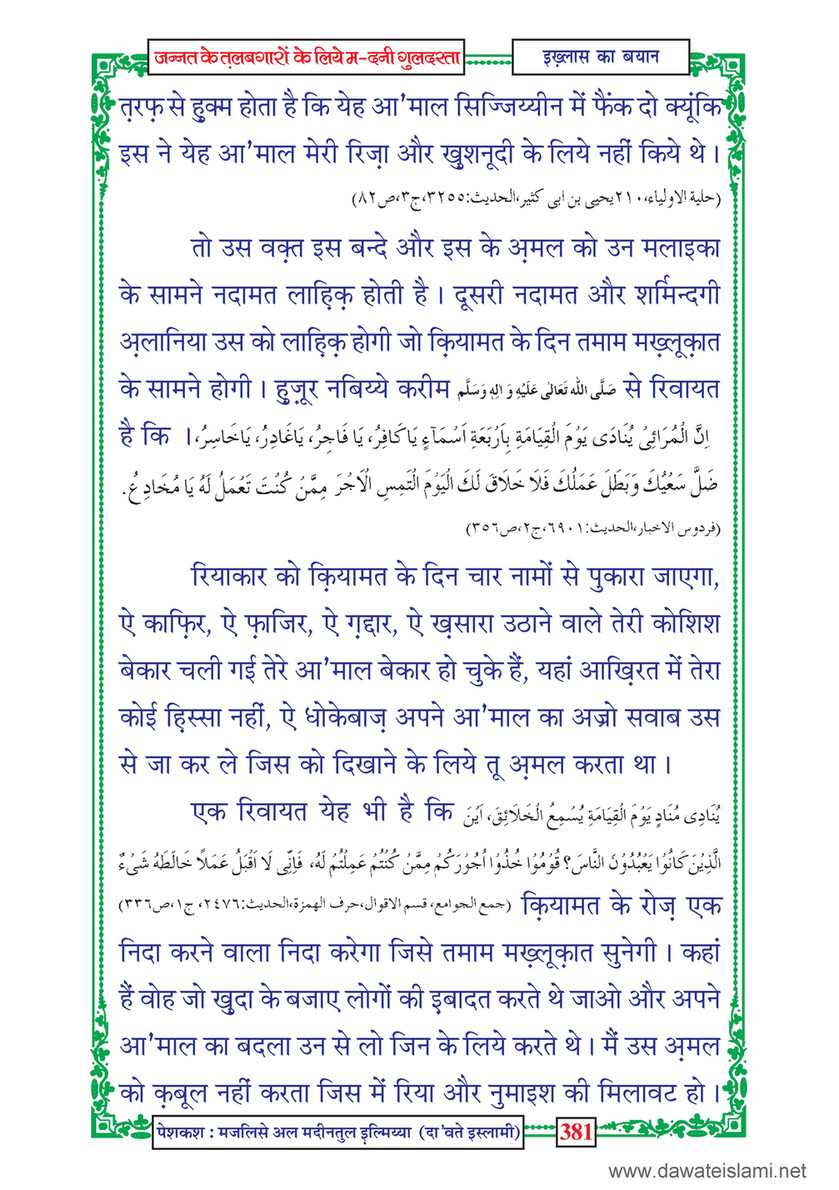 जन्नत के त़लबगारों के लिये म-दनी गुलदस्ता
इख़्लास का बयान
त़रफ़ से हुक्म होता है कि येह आ'माल सिज्जिय्यीन में फैंक दो क्यूंकि
इस ने येह आ'माल मेरी रिज़ा और ख़ुशनूदी के लिये नहीं किये थे ।
(حلیة الاولیاء،۲۱۰یحیی بن ابی کثیر،الحدیث:۳۲۵۵،ج۳،ص۸۲)
तो उस वक़्त इस बन्दे और इस के अ़मल को उन मलाइका
के सामने नदामत लाह़िक़ होती है । दूसरी नदामत और शर्मिन्दगी
अ़लानिया उस को लाह़िक़ होगी जो क़ियामत के दिन तमाम मख़्लूक़ात
के सामने होगी । हुज़ूर नबिय्ये करीम صَلَّی اللہ تَعَالٰی عَلَیْہِ وَ اٰلِہٖ وَسَلَّم से रिवायत
है कि । اِنَّ الْمُرَائِیْ یُنَادَی یَوْمَ الْقِیَامَةِ بِاَرْبَعَةِ اَسْمَآءٍ یَا کَافِرُ، یَا فَاجِرُ، یَاغَادِرُ، یَاخَاسِرُ،
ضَلَّ سَعْیُکَ وَبَطَلَ عَمَلُکَ فَلَا خَلَاقَ لَکَ الْیَوْمَ الْتَمِسِ الْاَجْرَ مِمَّنْ کُنْتَ تَعْمَلُ لَهُ یَا مُخَادِعُ.
(فردوس الاخبار،الحدیث:۶۹۰۱،ج۲،ص۳۵۶)
रियाकार को क़ियामत के दिन चार नामों से पुकारा जाएगा,
ऐ काफ़िर, ऐ फ़ाजिर, ऐ ग़द्दार, ऐ ख़सारा उठाने वाले तेरी कोशिश
बेकार चली गई तेरे आ'माल बेकार हो चुके हैं, यहां आख़िरत में तेरा
कोई ह़िस्सा नहीं, ऐ धोकेबाज़ अपने आ'माल का अज्रो सवाब उस
से जा कर ले जिस को दिखाने के लिये तू अ़मल करता था ।
एक रिवायत येह भी है कि یُنَادِی مُنَادٍ یَوْمَ الْقِیَامَةِ یُسْمِعُ الْخَلَائِقَ، اَیْنَ
الَّذِیْنَ کَانُوْا یَعْبُدُوْنَ النَّاسَ؟ قُوْمُوْا خُذُوْا اُجُوْرَکُمْ مِمَّنْ کُنْتُمْ عَمِلْتُمْ لَهُ، فَاِنِّی لَا اَقْبَلُ عَمَلًا خَالَطَهُ شَیْءٌ
(جمع الجوامع، قسم الاقوال، حرف الهمزة، الحدیث:۲۴۷۶، ج۱، ص۳۳۶) क़ियामत के रोज़ एक
निदा करने वाला निदा करेगा जिसे तमाम मख़्लूक़ात सुनेगी । कहां
हैं वोह जो ख़ुदा के बजाए लोगों की इ़बादत करते थे जाओ और अपने
आ'माल का बदला उन से लो जिन के लिये करते थे । मैं उस अ़मल
को क़बूल नहीं करता जिस में रिया और नुमाइश की मिलावट हो ।
पेशकश : मजलिसे अल मदीनतुल इ़ल्मिय्या (दा'वते इस्लामी)
381
www.dawateislami.net